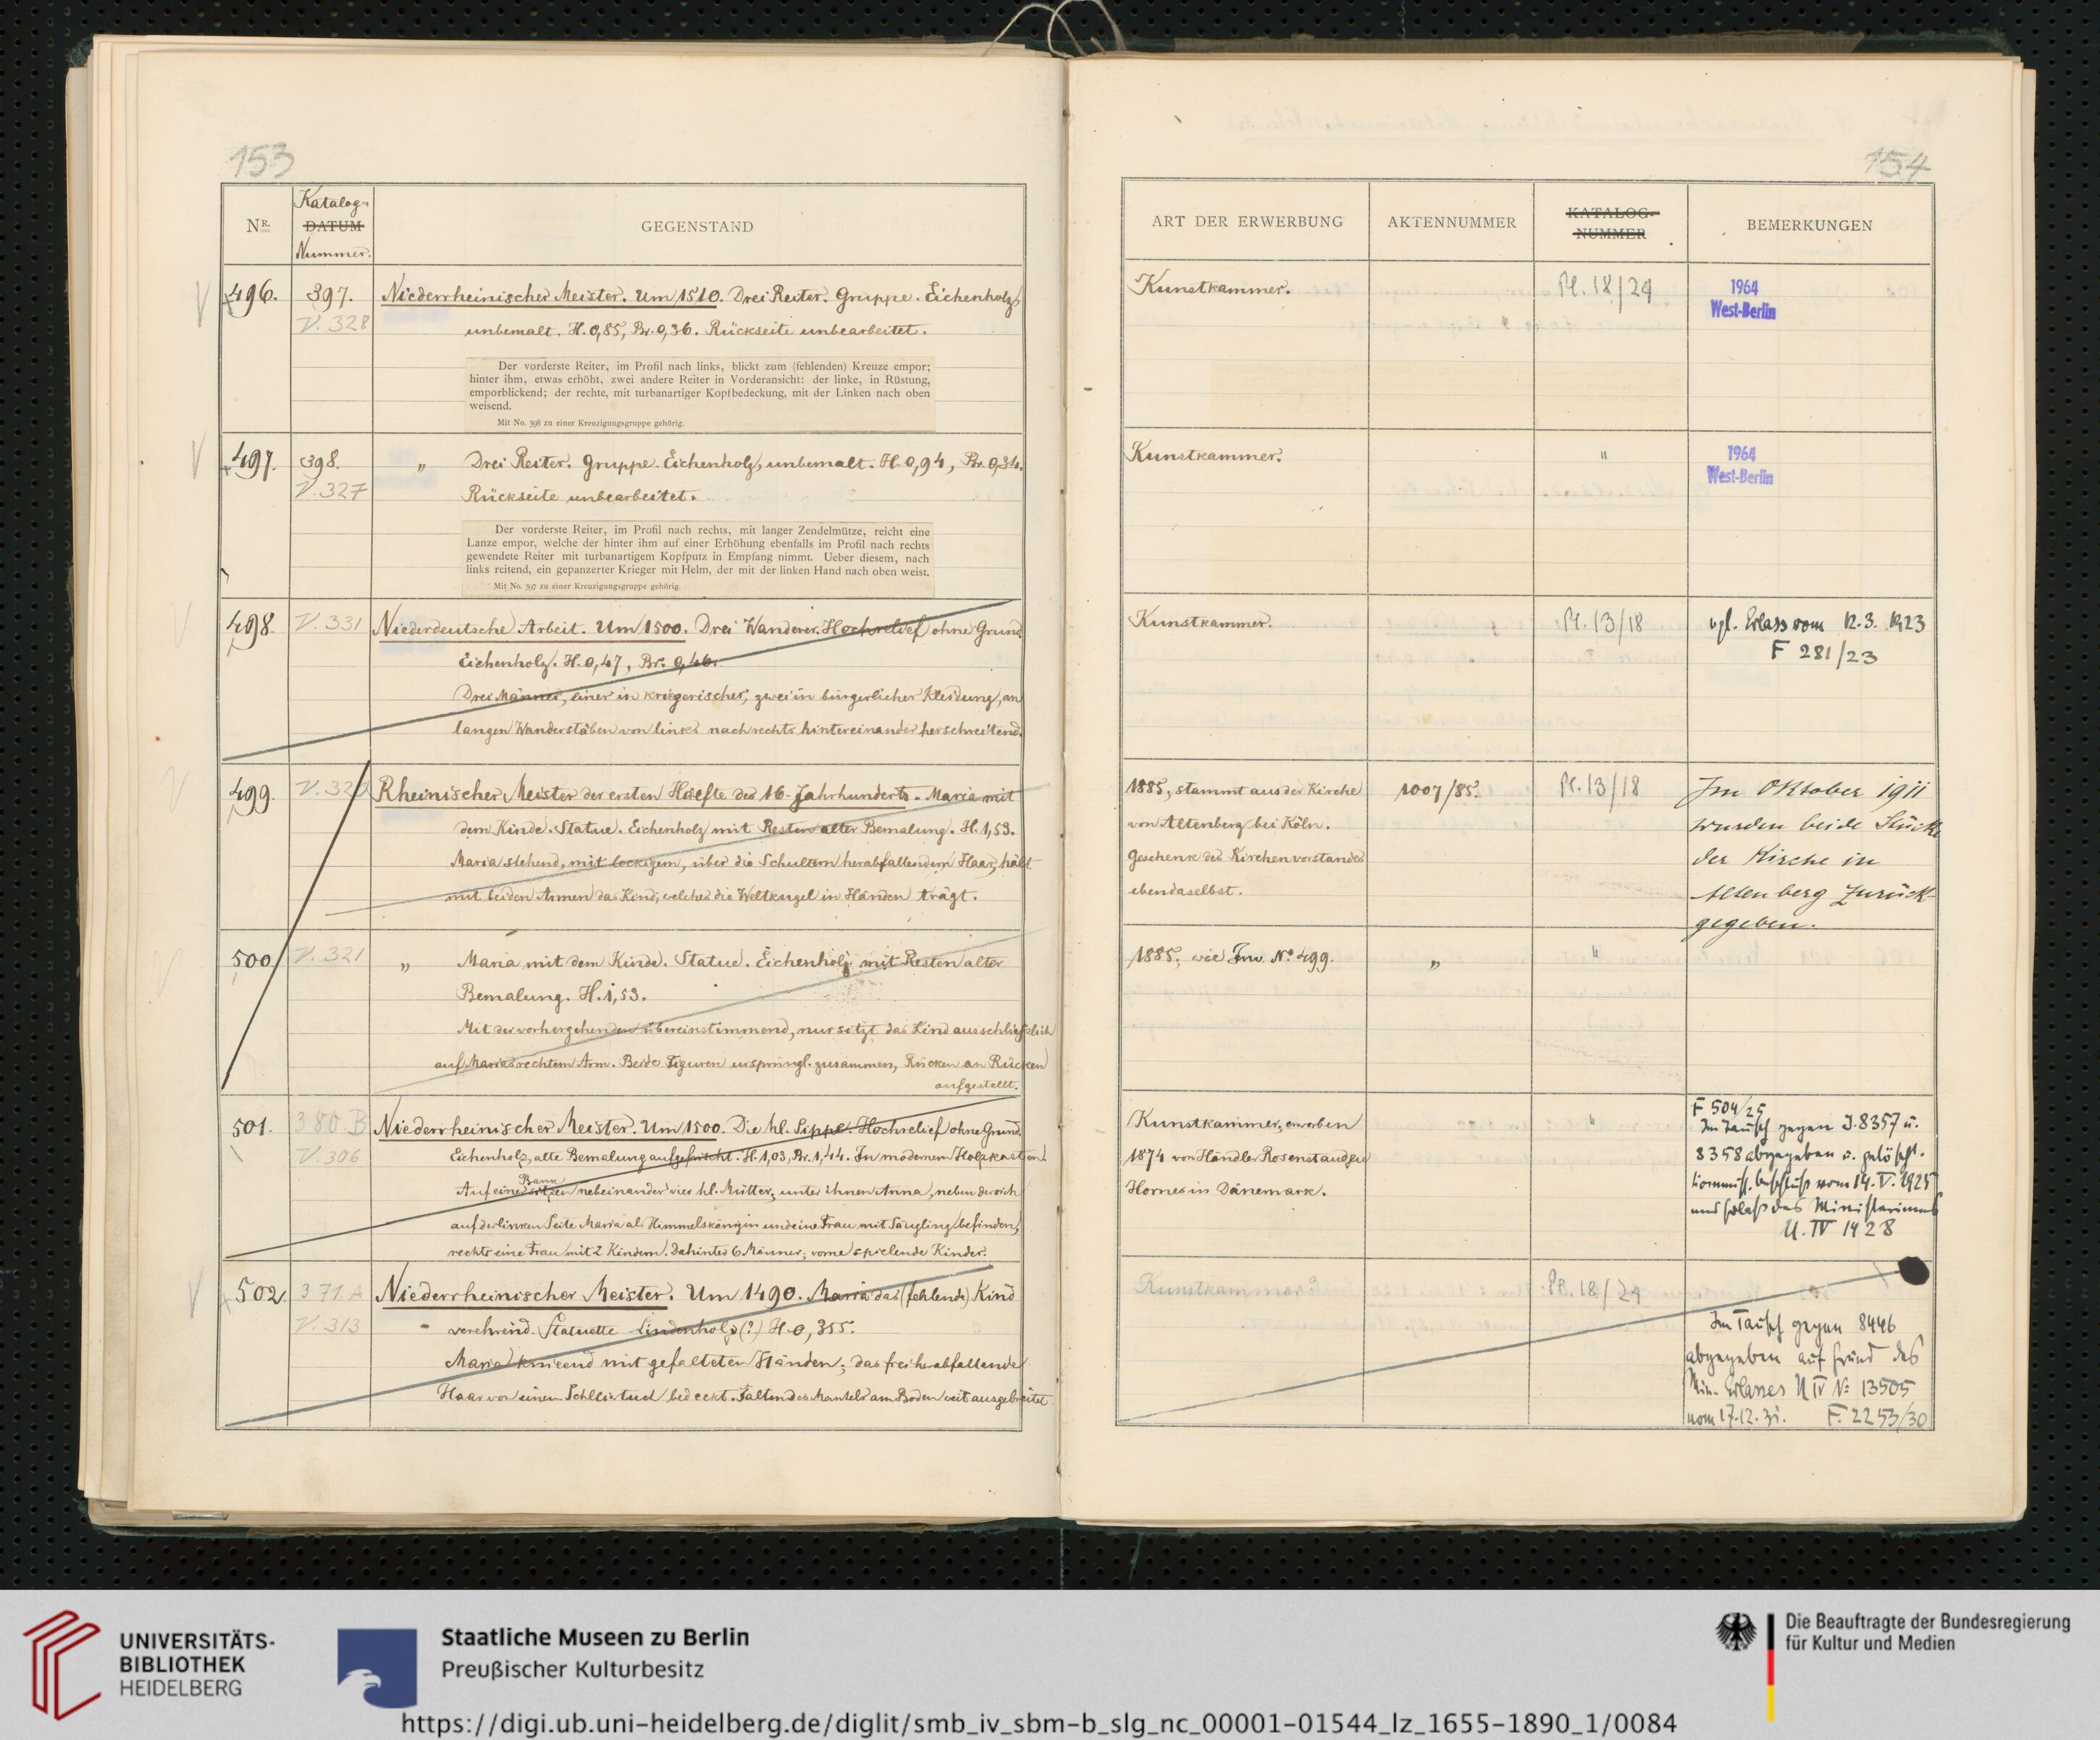 153
NR.
Katalog-
DATUM
Nummer.
GEGENSTAND
496.
397.
V. 328
Niederrheinischer Meister. Um 1510. Drei Reiter. Gruppe. Eichenholz,
unbemalt. H. 0,85, Br. 0,36. Rückseite unbearbeitet.
Der vorderste Reiter, im Profil nach links, blickt zum (fehlenden) Kreuze empor;
hinter ihm, etwas erhöht, zwei andere Reiter in Vorderansicht: der linke, in Rüstung,
emporblickend; der rechte, mit turbanartiger Kopfbedeckung, mit der Linken nach oben
weisend.
Mit No. 398 zu einer Kreuzigungsgruppe gehörig.
497.
398.
V. 327
„ Drei Reiter. Gruppe. Eichenholz, unbemalt. H. 0,94, Br. 0,34.
Rückseite unbearbeitet.
Der vorderste Reiter, im Profil nach rechts, mit langer Zendelmütze, reicht eine
Lanze empor, welche der hinter ihm auf einer Erhöhung ebenfalls im Profil nach rechts
gewendete Reiter mit turbanartigem Kopfputz in Empfang nimmt. Ueber diesem, nach
links reitend, ein gepanzerter Krieger mit Helm, der mit der linken Hand nach oben weist.
Mit No. 397 zu einer Kreuzigungsgruppe gehörig.
498.
V. 331
Niederdeutsche Arbeit. Um 1500. Drei Wanderer. Hochrelief ohne Grund.
Eichenholz. H. 0,47, Br. 0,46.
Drei Männer, einer in kriegerischer, zwei in bürgerlicher Kleidung, an
langen Wanderstäben von links nach rechts hintereinander herschreitend.
499.
Rheinischer Meister der ersten Hälfte des 16. Jahrhunderts. Maria mit
dem Kinde. Statue. Eichenholz mit Resten alter Bemalung. H. 1,53.
Maria stehend, mit lockigem, über die Schultern herabfallendem Haar, hält
mit beiden Armen das Kind, welches die Weltkugel in Händen trägt.
500.
V. 321
„ Maria mit dem Kinde. Statue. Eichenholz mit Resten alter
Bemalung. H. 1,53.
Mit der vorhergehenden übereinstimmend, nur sitzt das Kind ausschließlich
auf Marias rechtem Arm. Beide Figuren ursprüngl. zusammen, Rücken an Rücken
aufgestellt.
501.
380 B
V. 306
Niederrheinischer Meister. Um 1500. Die hl. Sippe. Hochrelief ohne Grund.
Eichenholz, alte Bemalung aufgefrischt. H. 1,03, Br. 1,44. In modernem Holzkasten.
Bank
Auf einer sitzen nebeneinander vier hl. Mütter, unter ihnen Anna, neben der sich
auf der linken Seite Maria als Himmelskönigin und eine Frau mit Säugling befinden,
rechts eine Frau mit 2 Kindern. Dahinter 6 Männer; vorne spielende Kinder.
502.
371 A
V. 313
Niederrheinischer Meister. Um 1490. Maria das (fehlende) Kind
verehrend. Statuette Lindenholz (?) H. 0,355.
Maria knieend mit gefalteten Händen; das frei herabfallende
Haar von einem Schleiertuch bedeckt. Falten des Mantels am Boden weit ausgebreitet.
154
ART DER ERWERBUNG
AKTENNUMMER
KATALOG-
NUMMER
BEMERKUNGEN
Kunstkammer.
Pl. 18/24
1964
West-Berlin
Kunstkammer.
"
1964
West-Berlin
Kunstkammer.
Pl. 13/18
vgl. Erlass vom 12.3.1923
F 281/23
1885, stammt aus der Kirche
von Altenberg bei Köln.
Geschenk des Kirchenvorstandes
ebendaselbst.
1007/85.
Pl. 13/18
Im Oktober 1911
wurden beide Stücke
der Kirche in
Altenberg zurück-
gegeben.
1885, wie Inv. No. 499.
„
"
Kunstkammer, erworben
1874 von Händler Rosenstand zu
Hornes in Dänemark.
"
F 504/25
Im Tausch gegen J. 8357 u.
8358 abgegeben u. gelöscht.
Kommiss. Beschluß vom 14. V. 1925
und Erlaß des Ministeriums
U. IV 1428
Kunstkammer.
Pl. 18/24
Im Tausch gegen 8446
abgegeben auf Grund des
Min. Erlasses U IV No 13505
vom 17.12.31. F. 2253/30
UNIVERSITÄTS-
BIBLIOTHEK
HEIDELBERG
Staatliche Museen zu Berlin
Preußischer Kulturbesitz
Die Beauftragte der Bundesregierung
für Kultur und Medien
https://digi.ub.uni-heidelberg.de/diglit/smb_iv_sbm-b_slg_nc_00001-01544_lz_1655-1890_1/0084